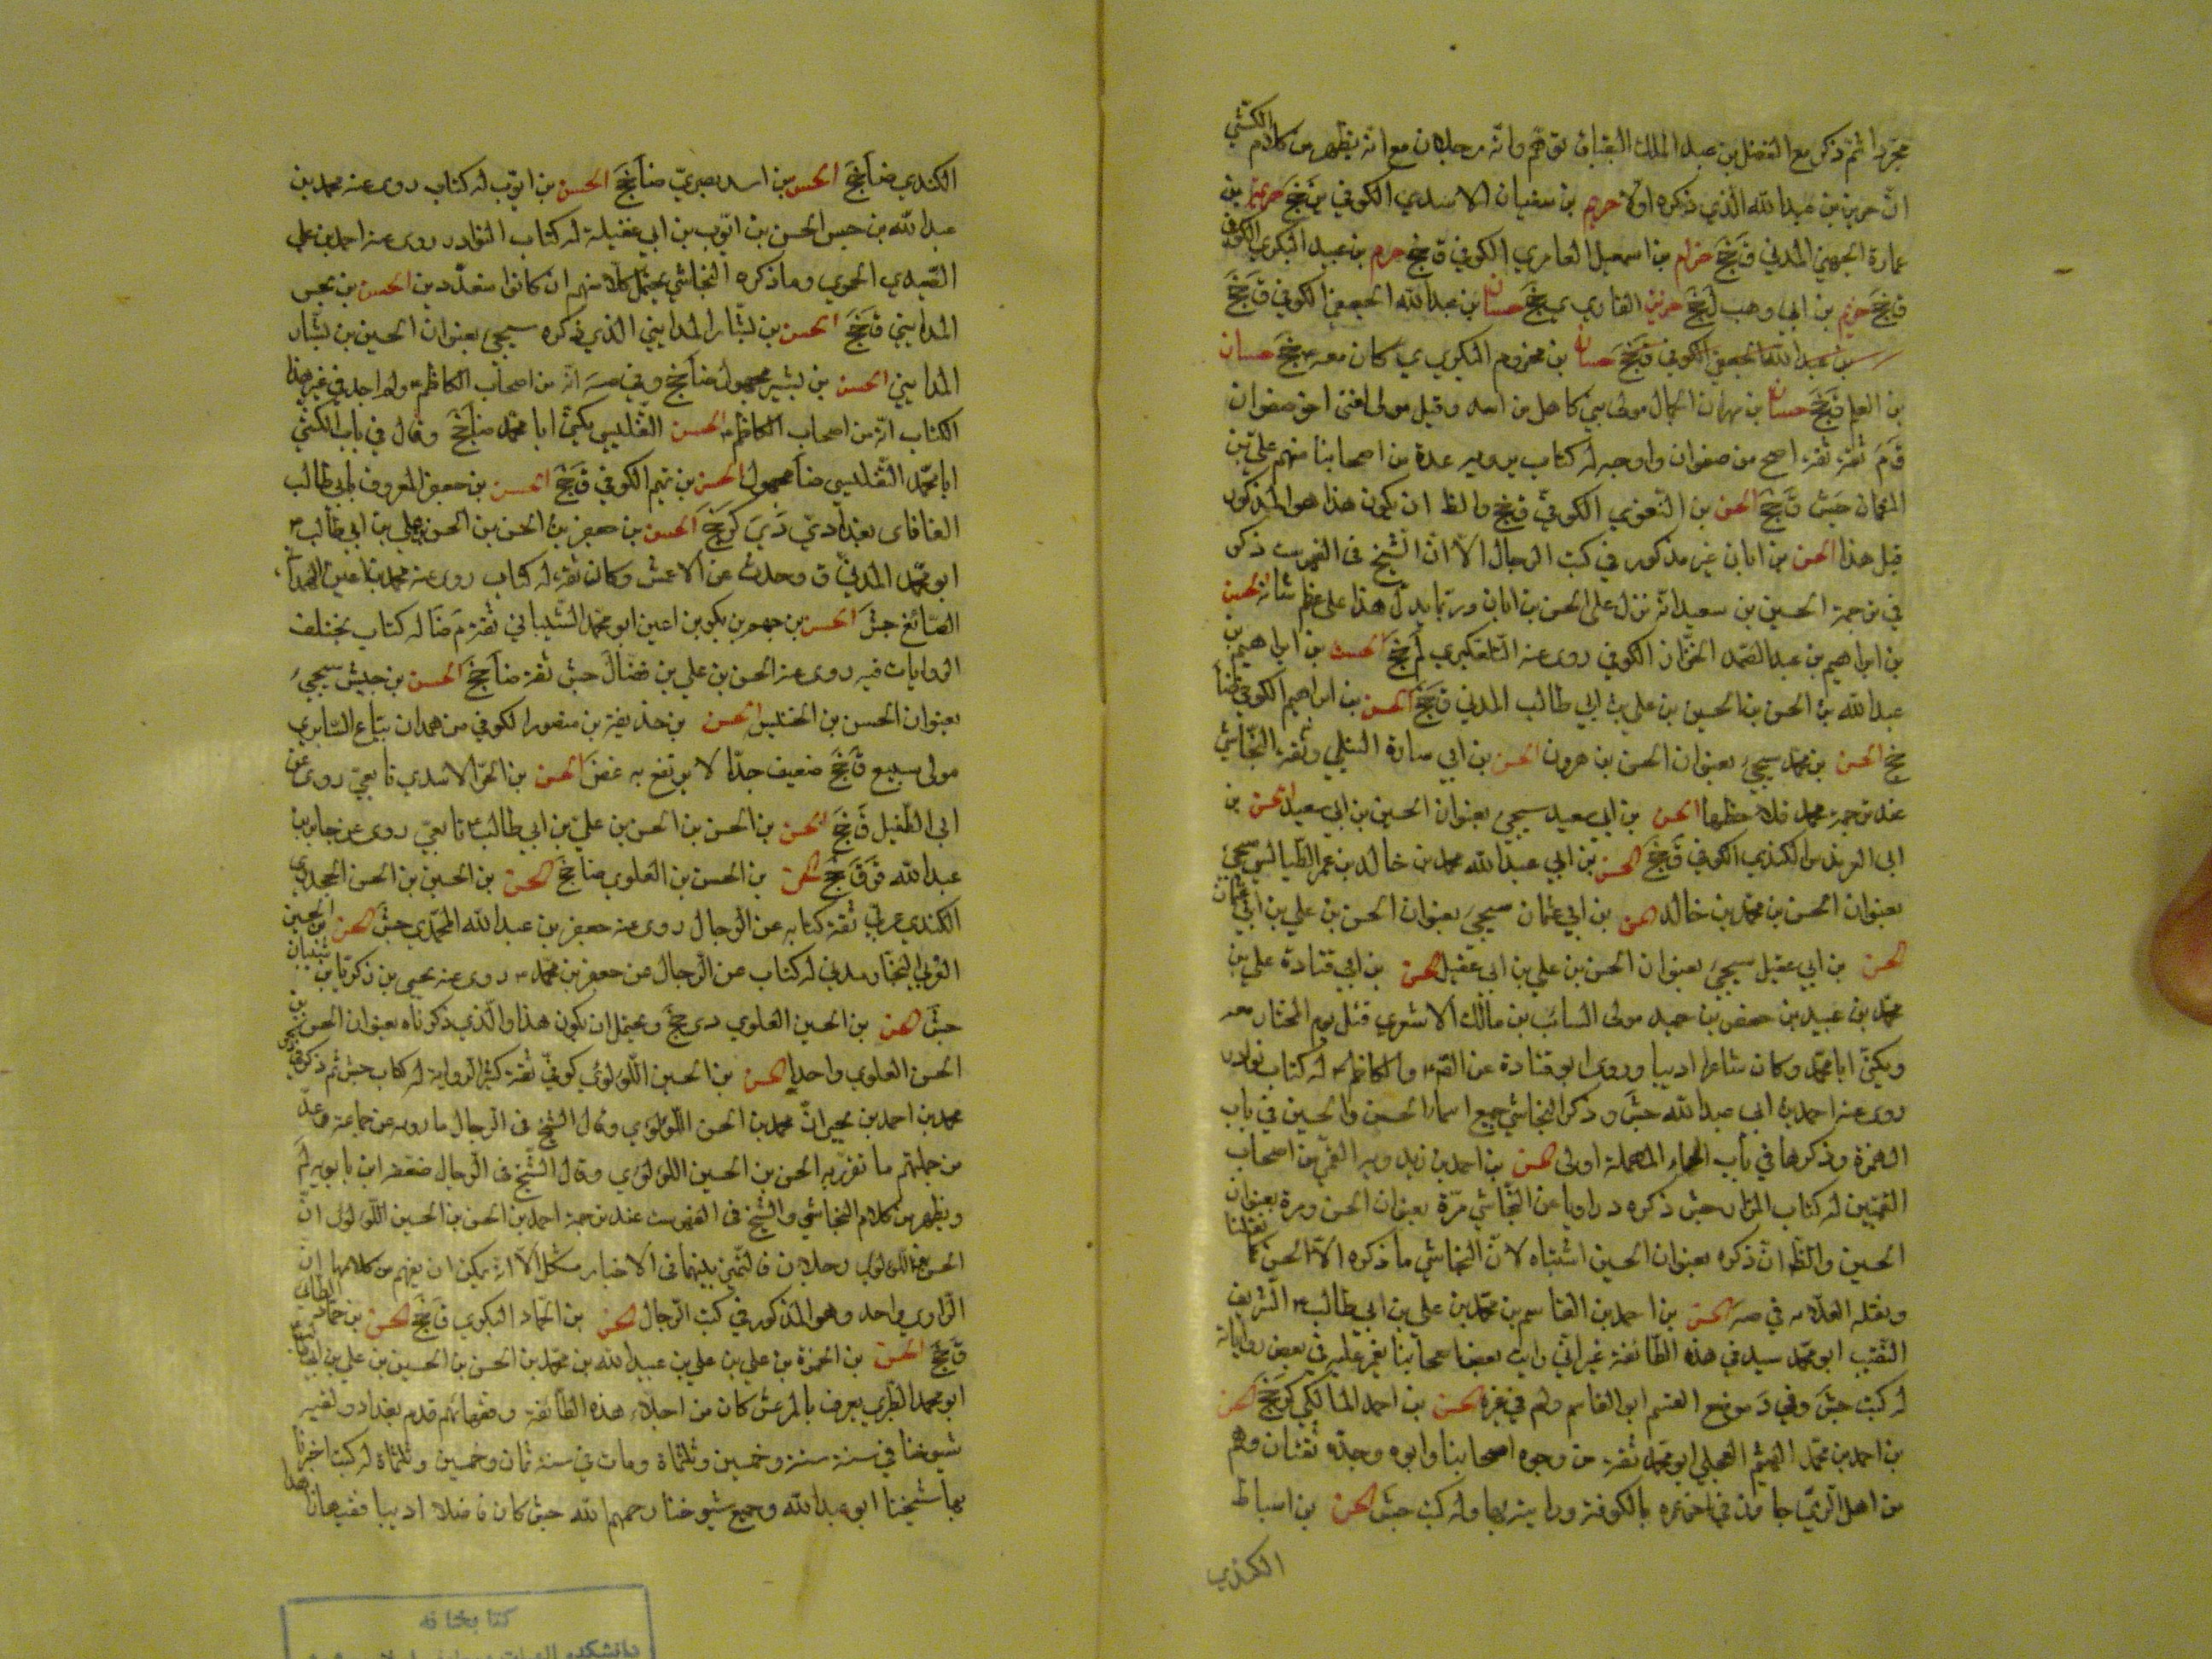 مجردا ثم ذكر مع الفضل بن عبد الملك البقباق توهم وانه رجلان مع انه يظهر من كلام الكشي
ان حريز بن عبد الله الذي ذكره اولا حريم بن سفيان الاسدي الكوفي ق جخ حريم بن
عمارة الجهني المدني ق جخ حزام بن اسمعيل العامري الكوفي ق جخ حزم بن عبيد البكري الكوفي
ق جخ حزم بن ابي وهب ل جخ حزين القاري ي جخ حسان بن عبد الله الجعفي الكوفي ق جخ
بن عبد الله الجعفي الكوفي ق جخ حسان بن مخزوم البكري ي كان معه جخ حسان
بن المعلم ق جخ حسان بن مهران الجمال مولى بني كاهل من اسد وقيل مولى لغني اخو صفوان
ق م ثقة ثقة اصح من صفوان واوجه له كتاب يرويه عدة من اصحابنا منهم علي بن
النعمان جش ق جخ الحسن بن الكوفي ق جخ والظ ان يكون هذا هو المذكور
قبل هذا الحسن بن ابان غير مذكور في كتب الرجال الا ان الشيخ في الفهرست ذكر
في ترجمة الحسين بن سعيد انه نزل على الحسن بن ابان وربما يدل هذا على عظم شانه الحسن
بن ابراهيم بن عبد الصمد الخزاز الكوفي روى عنه التلعكبري لم جخ الحسن بن ابراهيم بن
عبد الله بن الحسن بن الحسين بن علي بن ابي طالب المدني ق جخ الحسن بن ابراهيم الكوفي ضا
جخ الحسن بن محمد سيجيء بعنوان الحسن بن هرون الحسن بن ابي سارة النيلي وثقه النجاشي
عند ترجمة محمد فلاحظها الحسن بن ابي سعيد سيجيء بعنوان الحسين بن ابي سعيد الحسن بن
ابي العرندس الكندي الكوفي ق جخ الحسن بن ابي عبد الله محمد بن خالد بن عمر الطيالسي سيجيء
بعنوان الحسن بن محمد بن خالد الحسن بن ابي عثمان سيجيء بعنوان الحسن بن علي بن ابي عثمان
الحسن بن ابي عقيل سيجيء بعنوان الحسن بن علي بن ابي عقيل الحسن بن ابي قتادة علي بن
محمد بن عبيد بن حفص بن حميد مولى السائب بن مالك الاشعري قتل يوم المختار معه
ويكنى ابا محمد وكان شاعرا اديبا وروى ابو قتادة عن الصم والكاظم له كتاب نوادر
روى عنه احمد بن ابي عبد الله جش وذكر النجاشي جميع اسماء الحسن والحسين في باب
الهمزة وذكرها في باب الحاء المهملة اولى الحسن بن احمد بن ريذويه القمي من اصحاب
القميين له كتاب المزار جش ذكره د راويا عن النجاشي مرة بعنوان الحسن ومرة بعنوان
الحسين والظ ان ذكره بعنوان الحسين اشتباه لان النجاشي ما ذكره الا الحسن كما نقلنا
ونقله العلامه في صه الحسن بن احمد بن القاسم بن محمد بن علي بن ابي طالب الشريف
النقيب ابو محمد سيد في هذه الطائفة غير اني رايت بعض اصحابنا يغمز عليه في بعض رواياته
له كتب جش وفي د موضع القسم ابو القاسم ولم في غيره الحسن بن احمد المالكي كر جخ الحسن
بن احمد بن محمد الهيثم العجلي ابو محمد ثقة من وجوه اصحابنا وابوه وجده ثقتان وهم
من اهل الري جاور في اخر عمره بالكوفة ورايته بها وله كتب جش الحسن بن اسباط
الكندي
الكندي ضا جخ الحسن بن اسد بصري ضا جخ الحسن بن ايوب له كتاب روى عنه محمد بن
عبد الله بن حبس الحسن بن ايوب بن ابي عقيلة له كتاب النوادر روى عنه احمد بن علي
الصيدي الحموي وما ذكره النجاشي يحتمل كلا منهم ان كانوا متعددين الحسن بن بحر
المدايني ق جخ الحسن بن بشار المدايني الذي ذكره سيجيء بعنوان الحسين بن بشار
المدايني الحسن بن بشير مجهول ضا جخ وفي صه انه من اصحاب الكاظم ولم اجد في غير هذا
الكتاب انه من اصحاب الكاظم الحسن التفليسي يكنى ابا محمد ضا جخ وقال في باب الكنى
ابا محمد التفليسي ضا مجهول الحسن بن تميم الكوفي ق جخ الحسن بن جعفر المعروف بابي طالب
الفافاى بغدادي دي كر جخ الحسن بن جعفر بن الحسن بن الحسن بن علي بن ابي طالب
ابو محمد المدني ق وحدث عن الاعمش وكان ثقة له كتاب روى عنه محمد بن اعين الهمداني
الصائغ جش الحسن بن جهم بن بكير بن اعين ابو محمد الشيباني ثقة م ضا له كتاب يختلف
الروايات فيه روى عنه الحسن بن علي بن فضال جش ثقة ضا جخ الحسن بن حبيش سيجيء
بعنوان الحسن بن الخنيس الحسن بن حذيفة بن منصور الكوفي من همدان بياع السابري
مولى سبيع ق جخ ضعيف جدا لا يرتفع به غض الحسن بن الحر الاسدي تابعي روى عن
ابي الطفيل ق جخ الحسن بن الحسن بن الحسن بن علي بن ابي طالب تابعي روى عن جابر بن
عبد الله ق ق جخ الحسن بن الحسن بن العلوي ضا جخ الحسن بن الحسين بن الحسن الجحدري
الكندي عربي ثقة كتابه عن الرجال روى عنه جعفر بن عبد الله المحمدي جش الحسن بن الحسين
العرني النجار مدني له كتاب عن الرجال عن جعفر بن محمد روى عنه يحيى بن زكريا بن شيبان
جش الحسن بن الحسين العلوي دي جخ ويحتمل ان يكون هذا والذي ذكرناه بعنوان الحسن بن
الحسن العلوي واحدا الحسن بن الحسين اللؤلؤي كوفي ثقة كثير الرواية له كتاب جش ثم ذكر في
محمد بن احمد بن يحيى ان محمد بن الحسن اللؤلؤي وقال الشيخ في الرجال ما رواه عن جماعة وعد
من جملتهم ما تفرد به الحسن بن الحسين اللؤلؤي وقال الشيخ في الرجال ضعفه ابن بابويه لم
ويظهر من كلام النجاشي والشيخ في الفهرست عند ترجمة احمد بن الحسن بن الحسين اللؤلؤي ان
الحسن اللؤلؤي رجلان فالتميز بينهما في الاخبار مشكل الا انه يمكن ان يفهم من كلامهما ان
الراوي واحد وهو المذكور في كتب الرجال الحسن بن الحماد البكري ق جخ الحسن بن حماد الطائي
ق جخ الحسن بن الحمزة بن علي بن عبيد الله بن محمد بن الحسن بن الحسين بن علي بن ابيطالب
ابو محمد الطبري يعرف بالمرعش كان من اجلاء هذه الطائفة وفقهائهم قدم بغداد ولقيه
شيوخنا في سنة ستة وخمسين وثلثماة ومات في سنة ثمان وخمسين وثلثماة له كتب اخبرنا
بها شيخنا ابو عبد الله وجميع شيوخنا رحمهم الله جش كان فاضلا اديبا فقيها زاهدا
كتابخانه